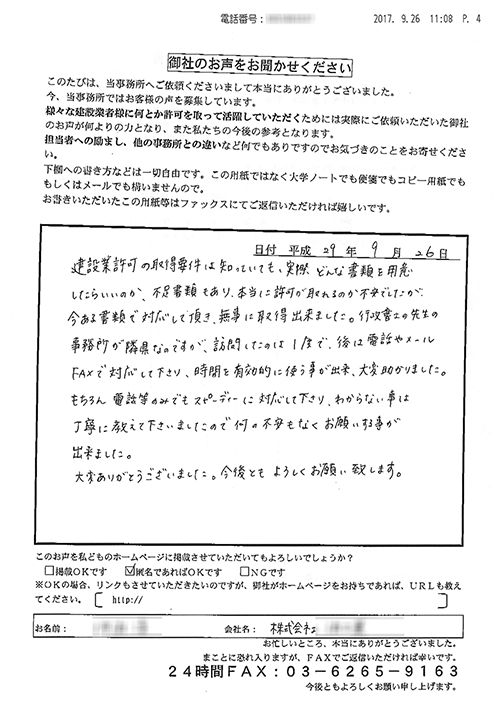 電話番号:
2017. 9.26 11:08 P. 4
御社のお声をお聞かせください
このたびは、当事務所へご依頼くださいまして本当にありがとうございました。
今、当事務所ではお客様の声を募集しています。
様々な建設業者様に何とか許可を取って活躍していただくためには実際にご依頼いただいた御社
のお声が何よりの力となり、また私たちの今後の参考となります。
担当者への励まし、他の事務所との違いなど何でもありですのでお気づきのことをお寄せくださ
い。
下欄への書き方などは一切自由です。この用紙ではなく大学ノートでも便箋でもコピー用紙でも
もしくはメールでも構いませんので。
お書きいただいたこの用紙等はファックスにてご返信いただければ嬉しいです。
日付 平成 29 年 9 月 26 日
建設業許可の取得要件は知っていても、実際どんな書類を用意
したらいいのか、不足書類もあり、本当に許可が取れるのか不安でしたが
今ある書類で対応して頂き、無事に取得出来ました。行政書士の先生の
事務所が隣県なのですが、訪問したのは1度で、後は電話やメール
FAXで対応して下さり、時間を有効的に使う事が出来、大変助かりました。
もちろん 電話等のみでもスピーディーに対応して下さり、わからない事は
丁寧に教えて下さいましたので何の不安もなくお願いする事が
出来ました。
大変ありがとうございました。今後とも よろしくお願い致します。
このお声を私どものホームページに掲載させていただいてもよろしいでしょうか?
□掲載OKです ☑匿名であればOKです □NGです
※OKの場合、リンクもさせていただきたいのですが、御社がホームページをお持ちであれば、URLも教え
てください。[ http:// ]
お名前: 会社名: 株式会社
お忙しいところ、本当にありがとうございました。
まことに恐れ入りますが、FAXでご返信いただければ幸いです。
24時間FAX:03-6265-9163
今後ともよろしくお願い申し上げます。